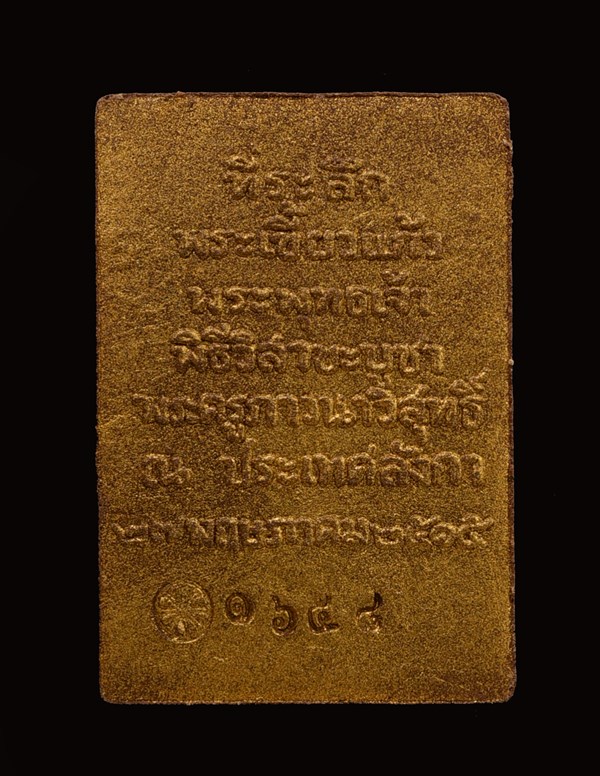 ที่ระลึก
พระเขี้ยวแก้ว
พระพุทธเจ้า
พิธีวิสาขะบูชา
พระครูภาวนาวิสุทธิ์
ณ ประเทศลังกา
๒๗ พฤษภาคม ๒๕๑๕
๑๖๕๘